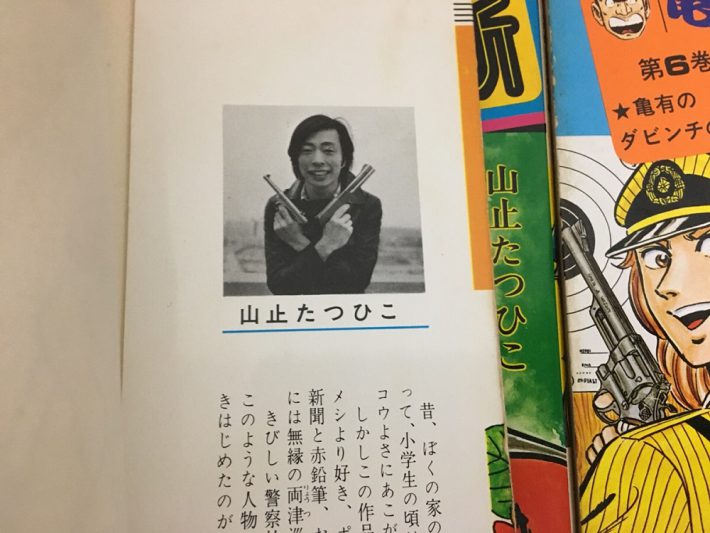 山止たつひこ
昔、ぼくの家の
って、小学生の頃
コウよさにあこが
しかしこの作品
メシより好き、ポ
新聞と赤鉛筆、
には無縁の両津
りょうつ
きびしい警察
このような人物
きはじめたのが
山止たつひこ
第6巻
★亀有の
ダビンチの